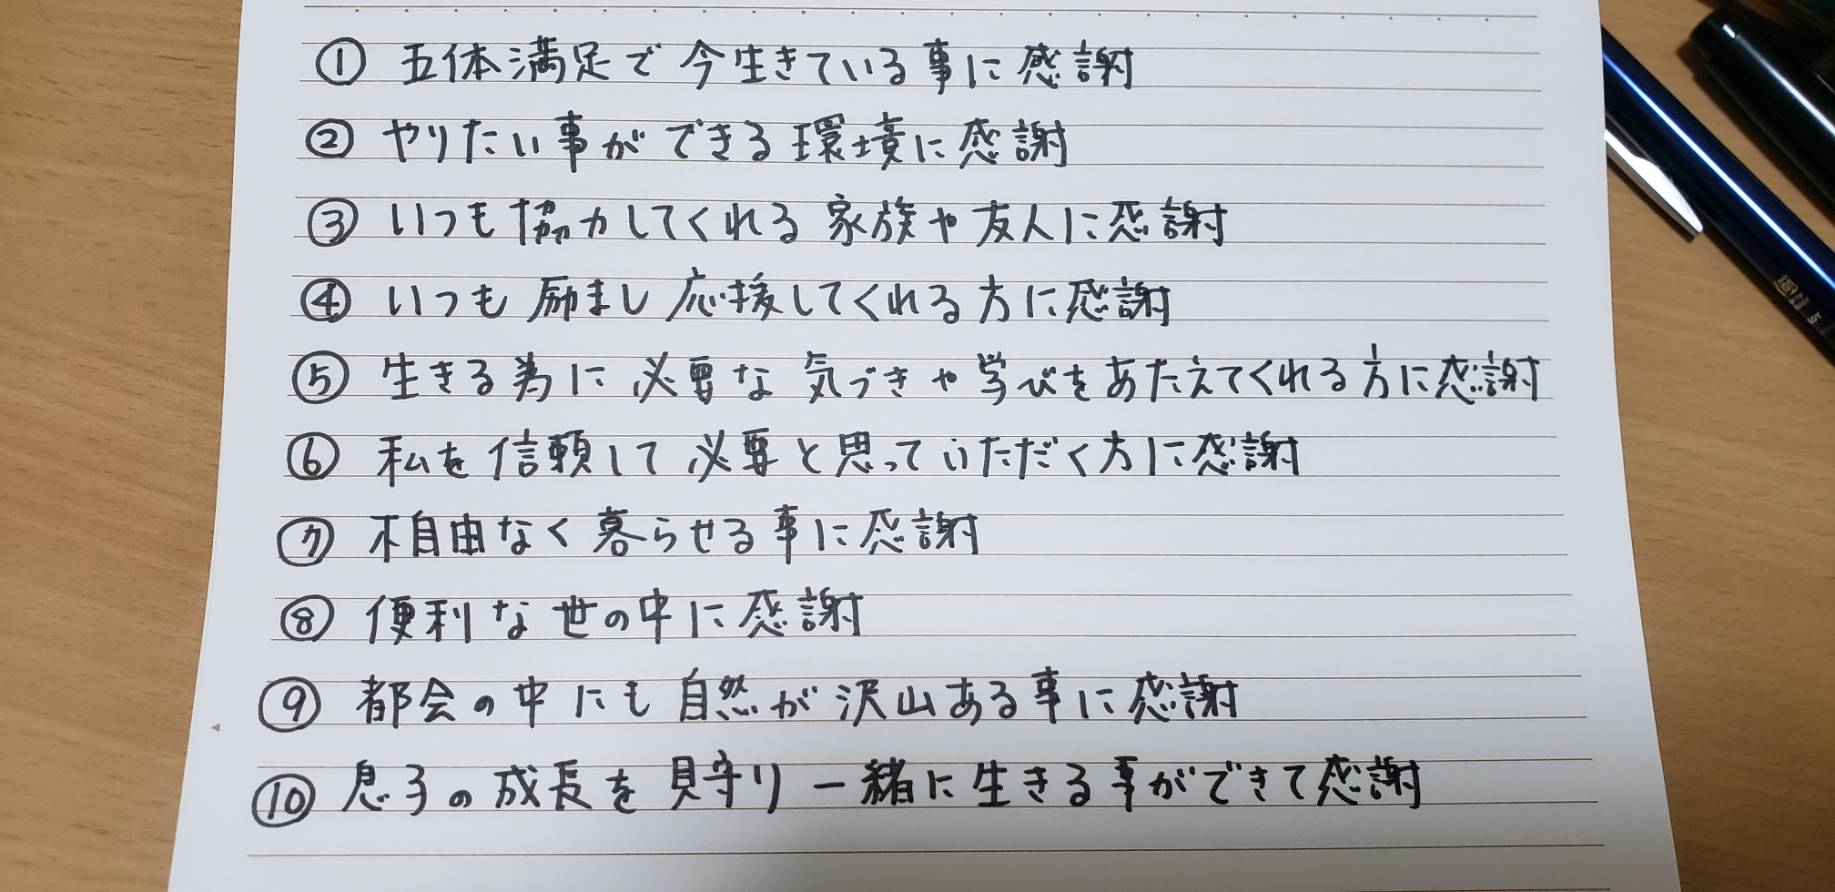 ① 五体満足で今生きている事に感謝
② やりたい事ができる環境に感謝
③ いつも協力してくれる家族や友人に感謝
④ いつも励まし応援してくれる方に感謝
⑤ 生きる為に必要な気づきや学びをあたえてくれる方に感謝
⑥ 私を信頼して必要と思っていただく方に感謝
⑦ 不自由なく暮らせる事に感謝
⑧ 便利な世の中に感謝
⑨ 都会の中にも自然が沢山ある事に感謝
⑩ 息子の成長を見守り一緒に生きる事ができて感謝